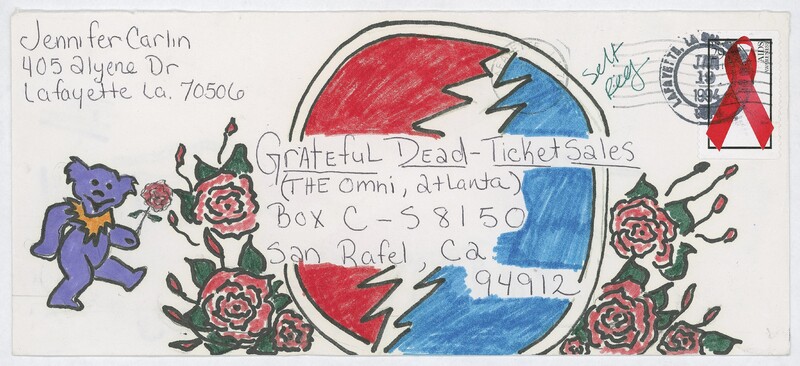 Jennifer Carlin
405 Alyene Dr
Lafayette La. 70506
Self
Reeg
LAFAYETTE, LA
JAN
19
1994
AIDS
Grateful Dead-Ticket Sales
(THE Omni, Atlanta)
Box C-S 8150
San Rafel, Ca
94912